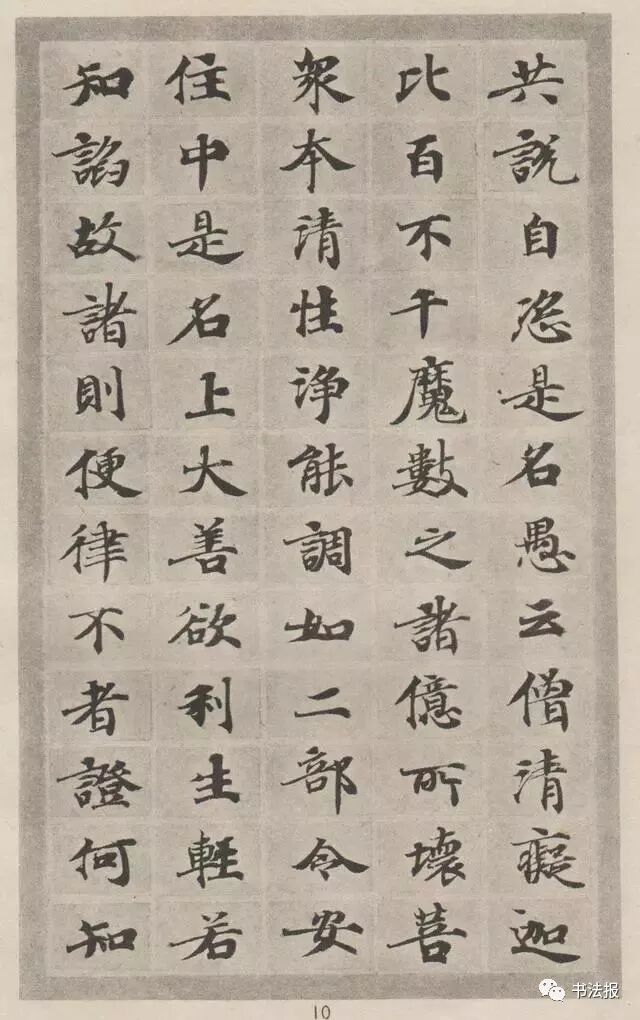 共說自恣是名愚云僧清癡迦
比百不千魔數之諸億所壞菩
衆本清性淨能調如二部令安
住中是名上大善欲利生輕若
知謟故諸則便律不者證何知
10
书法报